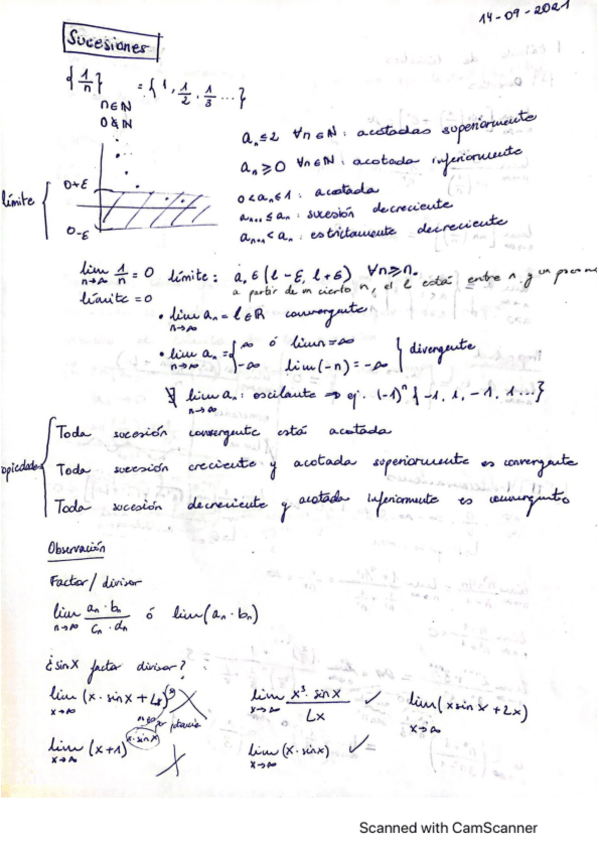 14-09-2021
Sucesiones
{1/n} = {1, 1/2, 1/3 ...}
n∈ℕ
0∉ℕ
aₙ ≤ 2 ∀n∈ℕ: acotadas superiormente
aₙ ⩾ 0 ∀n∈ℕ: acotada inferiormente
0 < aₙ ≤ 1: acotada
aₙ₊₁ ≤ aₙ: sucesión decreciente
aₙ₊₁ < aₙ: estrictamente decreciente
límite
0+ε
0-ε
lim n→∞ 1/n = 0 límite: aₙ ∈ (l-ε, l+ε) ∀n⩾n₀
límite = 0 a partir de un cierto n, el l está entre n y un
• lim n→∞ aₙ = l ∈ ℝ convergente
• lim n→∞ aₙ = { ∞ ó lim n = ∞
-∞ lim(-n) = -∞ } divergente
∄ lim n→∞ aₙ: oscilante ⇒ ej. (-1)ⁿ {-1, 1, -1, 1...}
opiedades
Toda sucesión convergente está acotada
Toda sucesión creciente y acotada superiormente es convergente
Toda sucesión decreciente y acotada inferiormente es convergente
Observación
Factor/divisor
lim n→∞ (aₙ · bₙ)/(cₙ · dₙ) ó lim(aₙ · bₙ)
¿sin x factor divisor?
lim x→∞ x³ · sin x / Lx ✓ lim x→∞ (x sin x + 2x)
lim x→∞ (x+1)^(x·sin x) ✗ lim x→∞ (x · sin x) ✓
Scanned with CamScanner